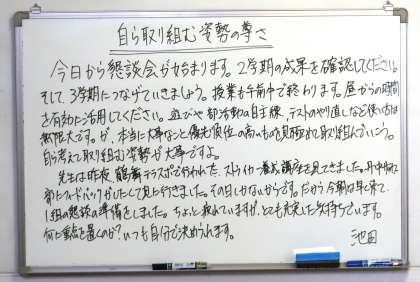 自ら取り組む姿勢の尊さ
今日から懇談会が始まります。2学期の成果を確認してください。
そして、3学期につなげていきましょう。授業も午前中で終わります。昼からの時間
を有効に活用してください。遊びや部活動の自主練、テストのやり直しなど使い方は
無限大です。が、本当に大事なこと優先順位の高いものを見極めて取り組んでいこう。
自ら考えて取り組む姿勢が大事ですよ。
先生は昨夜、鶴舞テラスポで行われた、ストライカー養成講座を見てきました。
部にフィードバックがしたくて見に行きました。その日しかないからです。だから今朝は早く来て、
1組の懇談の準備をしました。ちょっと疲れていますが、とても充実した気持ちです。
何に重点を置くのか？いつも自分で決められます。
池田